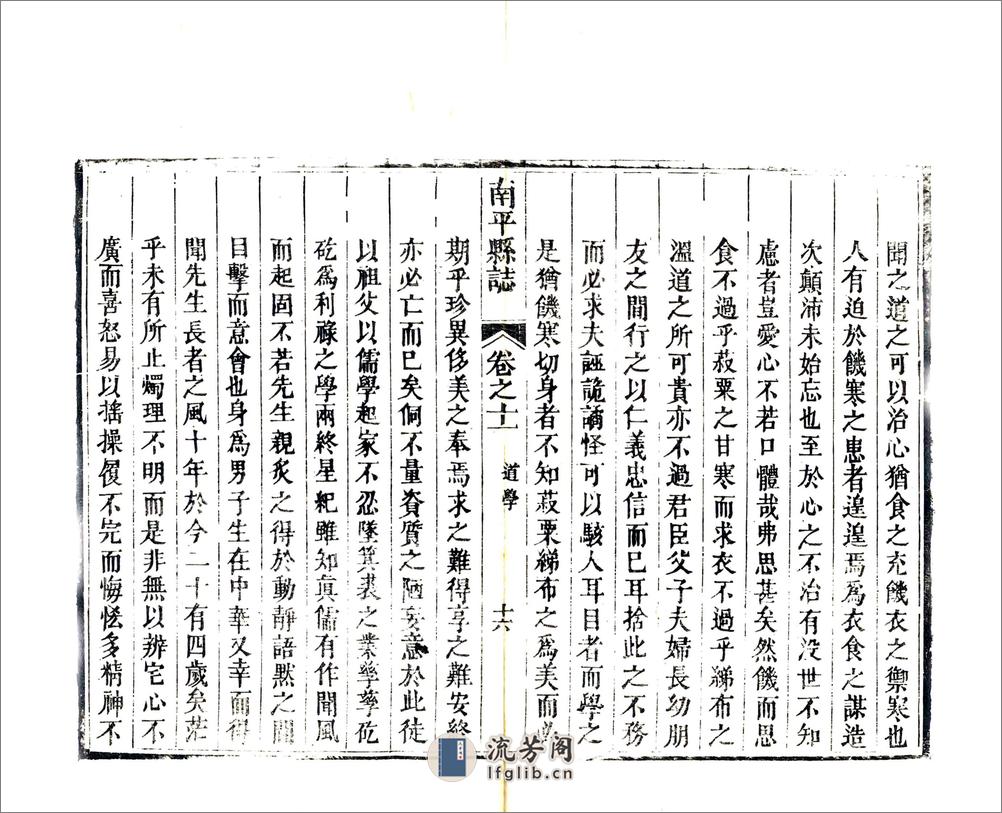 聞之道之可以治心猶食之充饑衣之禦寒也
人有迫於饑寒之患者遑遑焉為衣食之謀造
次顛沛未始忘也至於心之不治有没世不知
慮者豈愛心不若口體哉弗思甚矣然饑而思
食不過乎菽粟之甘寒而求衣不過乎綈布之
溫道之所可貴亦不過君臣父子夫婦長幼朋
友之間行之以仁義忠信而已耳捨此之不務
而必求夫誣詭譎怪可以駭人耳目者而學之
是猶饑寒切身者不知菽粟綈布之為美而
南平縣誌
卷之十一
道學
十六
期乎珍異侈美之奉焉求之難得享之難安終
亦必亡而已矣侗不量資質之陋妄意於此徒
以祖父以儒學起家不忍墜箕裘之業孳孳矻
矻為利祿之學兩終星紀雖知眞儒有作聞風
而起固不若先生親炙之得於動靜語黙之間
目擊而意會也身為男子生在中華又幸而得
聞先生長者之風十年於今二十有四歲矣茫
乎未有所止燭理不明而是非無以辨宅心不
廣而喜怒易以搖操履不完而悔恡多精神不
流芳阁
lfglib.cn